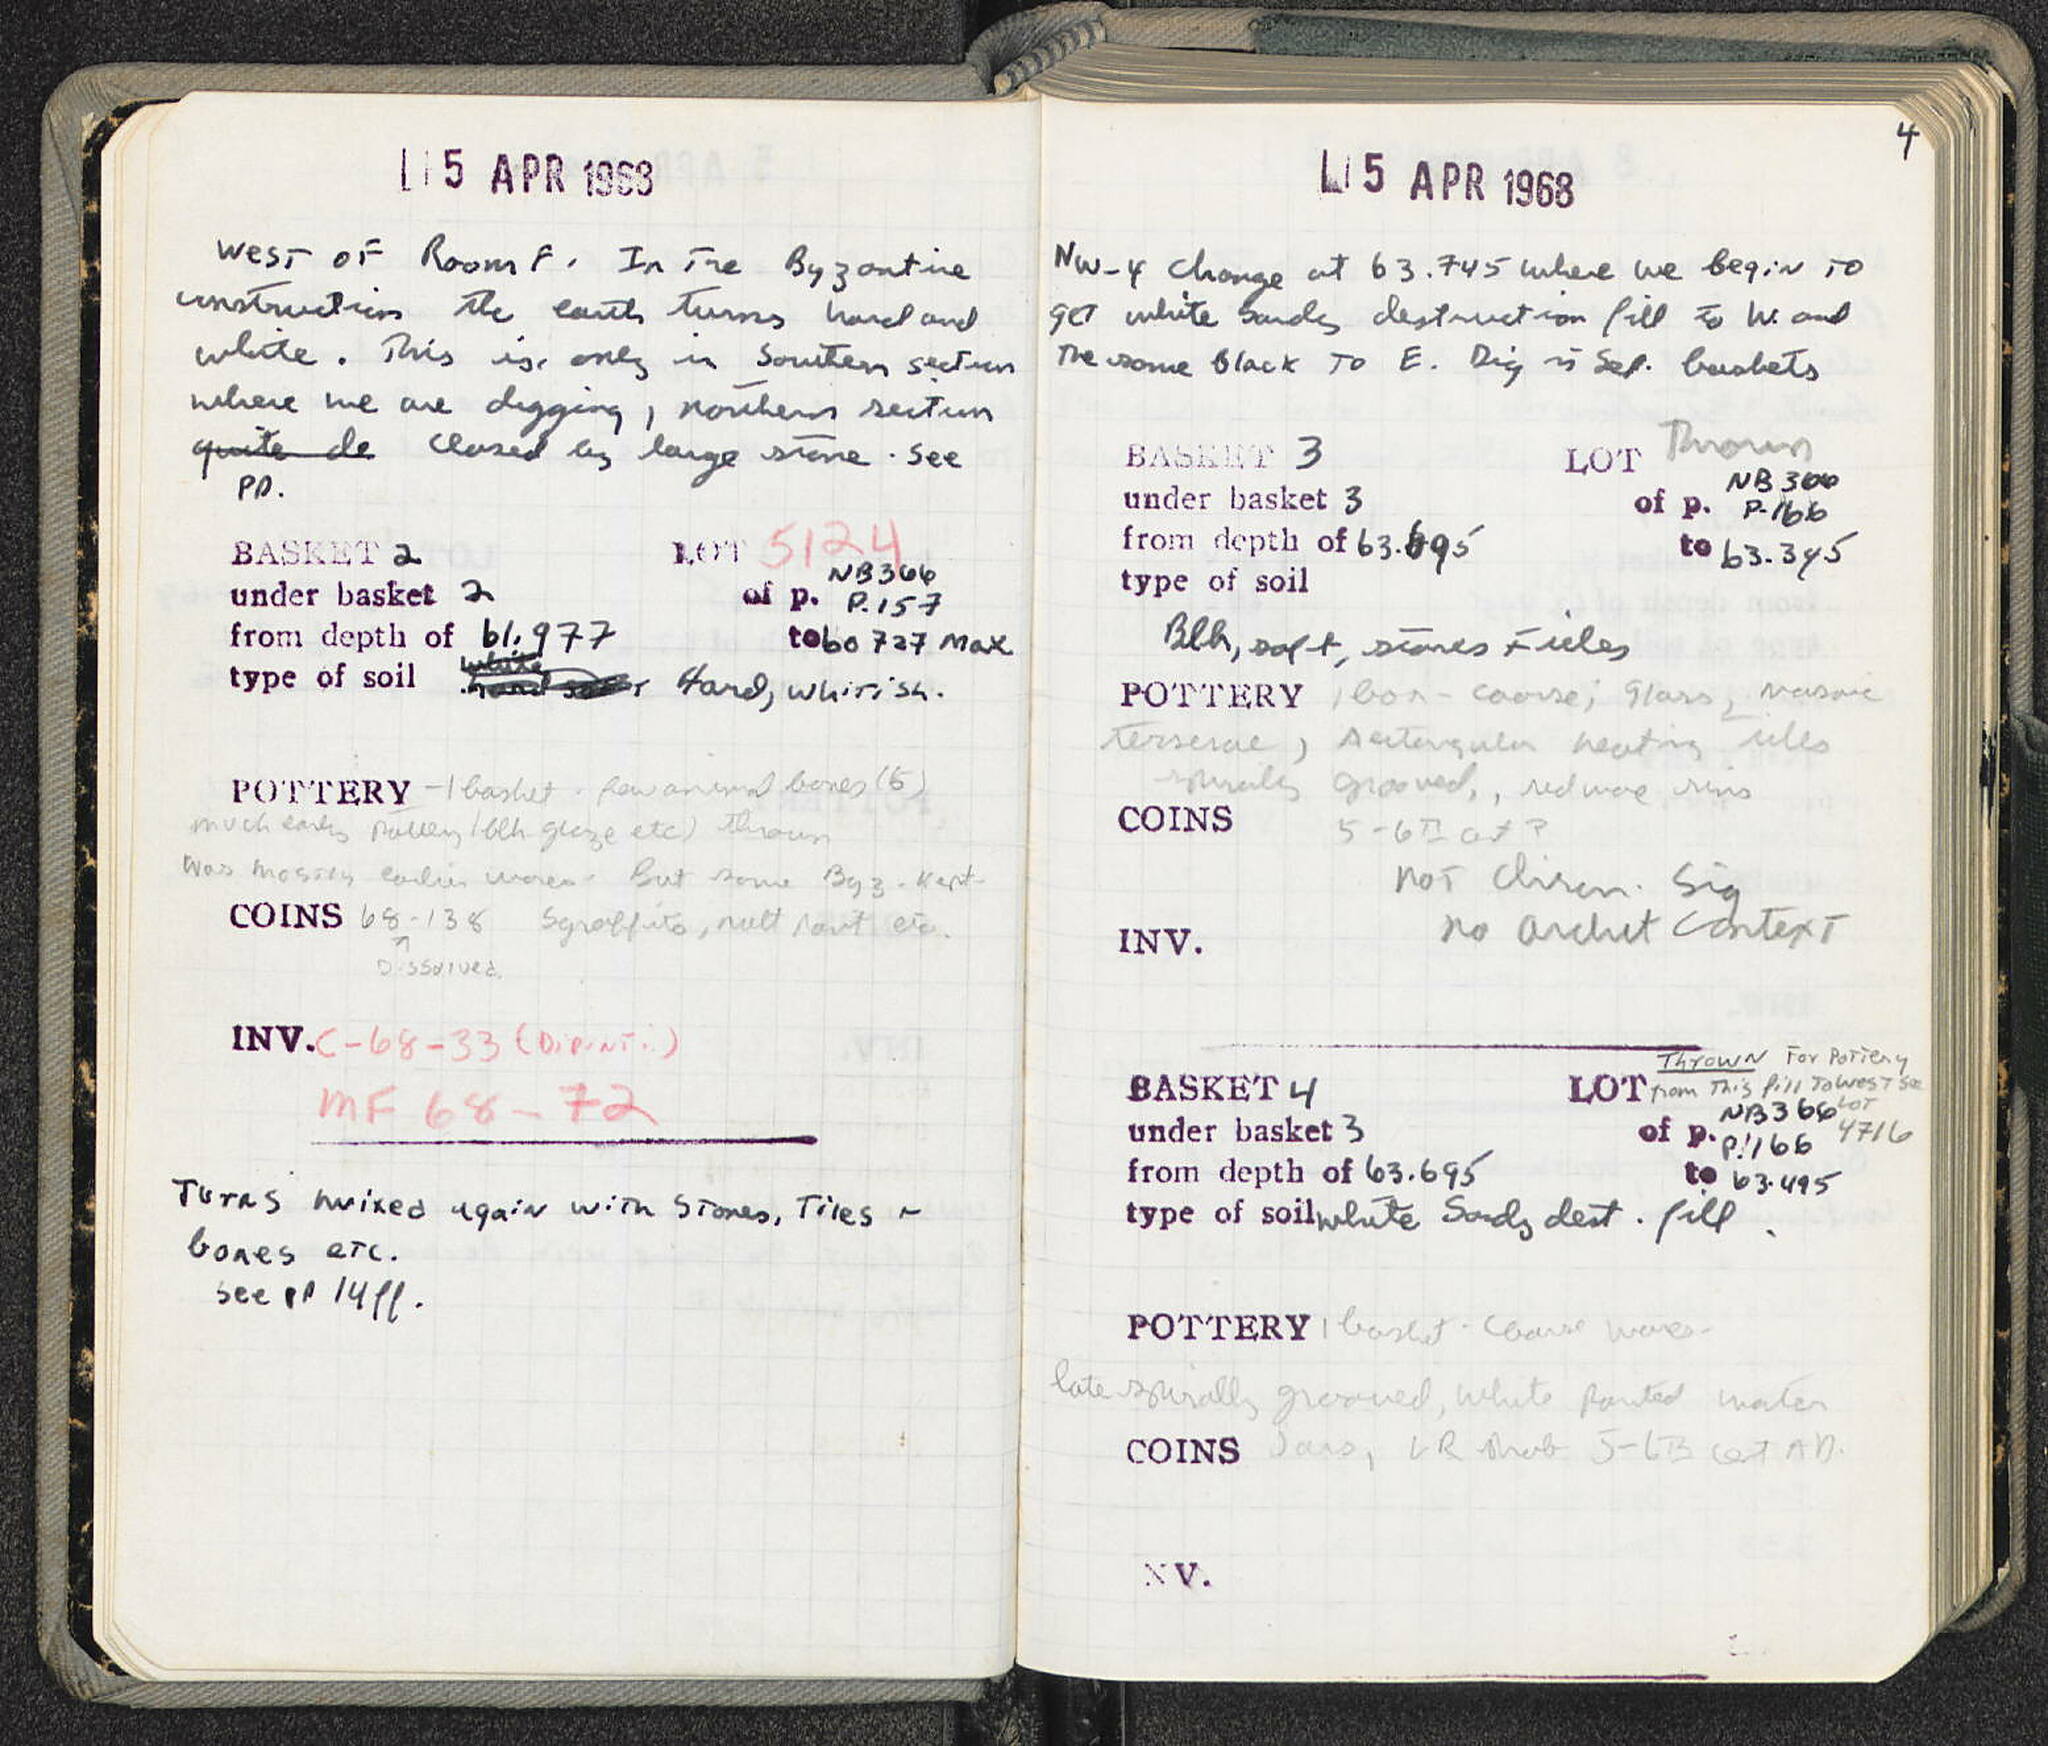 5 APR 1968
West of Room F. In the Byzantine
construction the earth turns hard and
white. This is only in Southern section
where we are digging, northern section
quite de closed by large stone. See
pp.
BASKET 2 LOT 5124
under basket 2 of p. NB 366 P. 157
from depth of 61.977 to 60 727 max
type of soil white Hard, whitish.
POTTERY - 1 basket. few animal bones (5)
much early pottery (blk glaze etc) thrown
was mostly earlier wares. But some Byz. kept
COINS 68-138 Sgraffito, matt paint etc.
↑
Dissolved.
INV. C-68-33 (Dipinti)
MF 68-72
Turns mixed again with stones, tiles ~
bones etc.
see pp 14 ff.
4
5 APR 1968
NW-4 change at 63.745 where we begin to
get white sandy destruction fill to W. and
the same black to E. Dig in sep. baskets
BASKET 3 LOT Thrown
under basket 3 of p. NB 366 P. 166
from depth of 63.695 to 63.345
type of soil
Blk, soft, stones + tiles
POTTERY 1 box - coarse; glass, mosaic
tesserae, rectangular heating tiles
spirally grooved, red ware rims
COINS 5-6th cent ?
not chron. sig
INV. no archit context
BASKET 4 LOT Thrown For Pottery
from this fill to west see
LOT 4716
under basket 3 of p. NB 366 P. 166
from depth of 63.695 to 63.495
type of soil white sandy dest. fill.
POTTERY 1 basket - coarse wares -
late spirally grooved, white painted water
COINS jars, LR prob 5-6th cent AD.
NV.